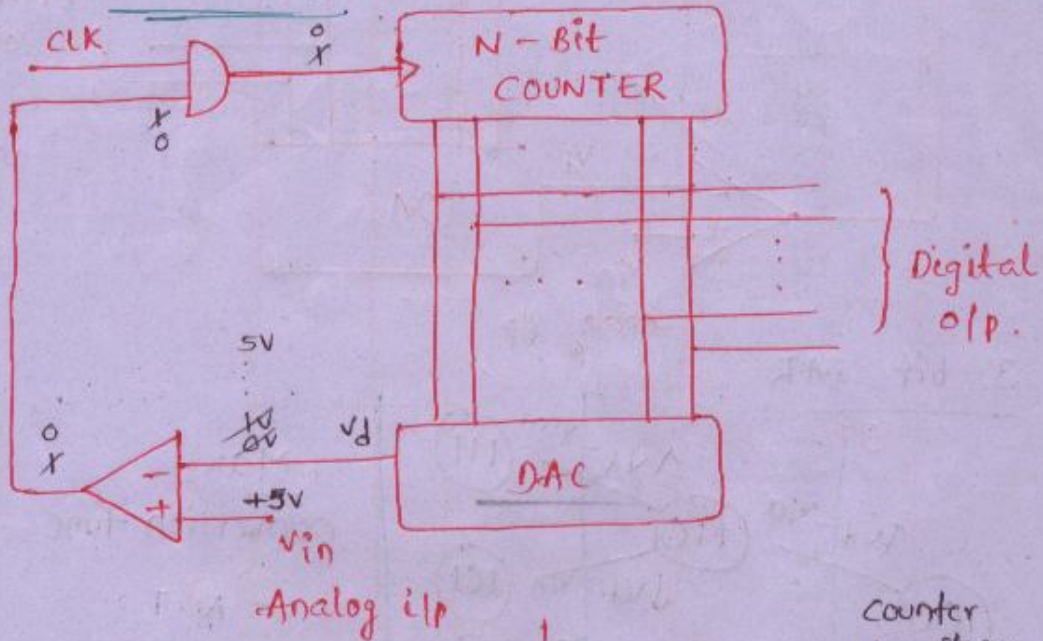 CLK
0
X
X
0
N-Bit
COUNTER
Digital
o/p.
5V
1V
0V
Vd
DAC
0
X
-
+
+5V
Vin
Analog i/p
counter